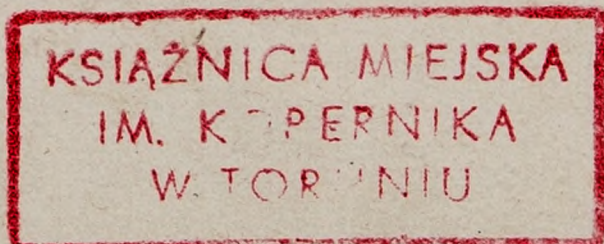 KSIĄŻNICA MIEJSKA
IM. KOPERNIKA
W TORUNIU